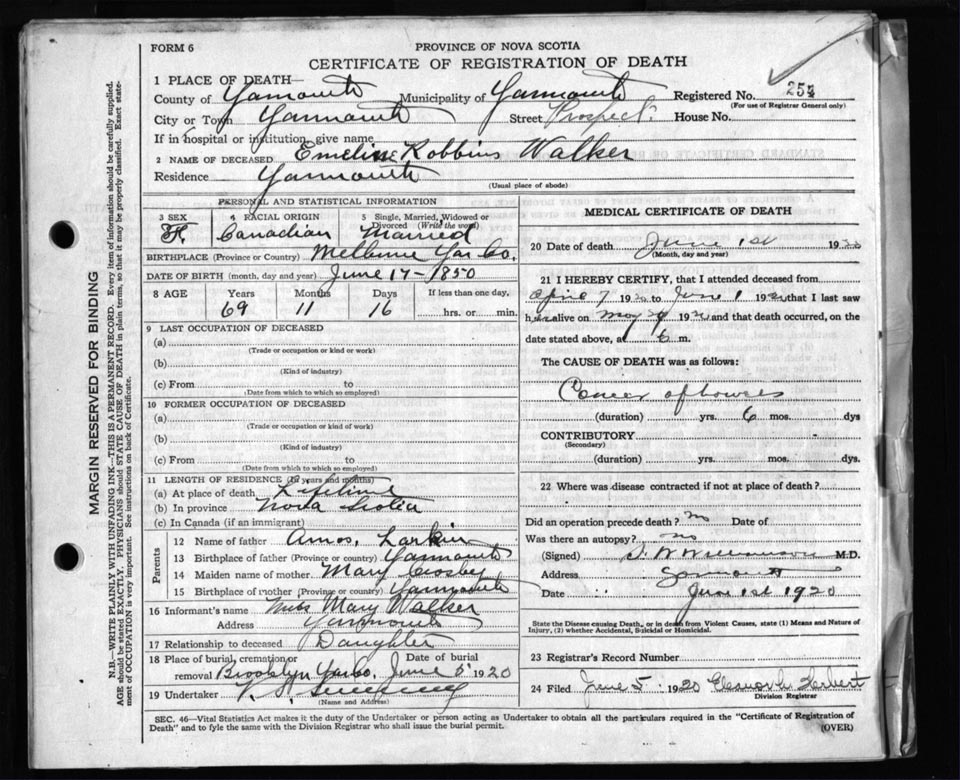 FORM 6
PROVINCE OF NOVA SCOTIA
CERTIFICATE OF REGISTRATION OF DEATH
1 PLACE OF DEATH—
County of Yarmouth Municipality of Yarmouth Registered No. 254
(For use of Registrar General only)
City or Town Yarmouth Street Prospect House No.
If in hospital or institution, give name
2 NAME OF DECEASED Emeline Robbins Walker
Residence Yarmouth
(Usual place of abode)
PERSONAL AND STATISTICAL INFORMATION
3 SEX 4 RACIAL ORIGIN 5 Single, Married, Widowed or Divorced (Write the word)
F. Canadian Married
BIRTHPLACE (Province or Country) Melburne Yar Co.
DATE OF BIRTH (month, day and year) June 17-1850
8 AGE Years Months Days If less than one day,
69 11 16 hrs. or min.
9 LAST OCCUPATION OF DECEASED
(a)
(Trade or occupation or kind or work)
(b)
(Kind of industry)
(c) From to
(Date from which to which so employed)
10 FORMER OCCUPATION OF DECEASED
(a)
(Trade or occupation or kind of work)
(b)
(Kind of industry)
(c) From to
(Date from which to which so employed)
11 LENGTH OF RESIDENCE (in years and months)
(a) At place of death Lifetime
(b) In province Nova Scotia
(c) In Canada (if an immigrant)
Parents
12 Name of father Amos Larkin
13 Birthplace of father (Province or country) Yarmouth
14 Maiden name of mother Mary Crosby
15 Birthplace of mother (Province or country) Yarmouth
16 Informant's name Miss Mary Walker
Address Yarmouth
17 Relationship to deceased Daughter
18 Place of burial, cremation or removal Brooklyn Yar Co. Date of burial June 5 1920
19 Undertaker
(Name and Address)
MEDICAL CERTIFICATE OF DEATH
20 Date of death June 1st 1920
(Month, day and year)
21 I HEREBY CERTIFY, that I attended deceased from
April 7 1920 to June 1 1920 that I last saw
her alive on May 29 1920 and that death occurred, on the
date stated above, at 6 m.
The CAUSE OF DEATH was as follows:
Cancer of bowels
(duration) yrs. 6 mos. dys
CONTRIBUTORY
(Secondary)
(duration) yrs. mos. dys.
22 Where was disease contracted if not at place of death?
Did an operation precede death? No Date of
Was there an autopsy? No
(Signed) Williamson M.D.
Address Yarmouth
Date June 1st 1920
State the Disease causing Death, or in death from Violent Causes, state (1) Means and Nature of Injury, (2) whether Accidental, Suicidal or Homicidal.
23 Registrar's Record Number
24 Filed June 5 1920
Division Registrar
SEC. 46—Vital Statistics Act makes it the duty of the Undertaker or person acting as Undertaker to obtain all the particulars required in the "Certificate of Registration of
Death" and to fyle the same with the Division Registrar who shall issue the burial permit. (OVER)
MARGIN RESERVED FOR BINDING
N.B.—WRITE PLAINLY WITH UNFADING INK—THIS IS A PERMANENT RECORD. Every item of information should be carefully supplied.
AGE should be stated EXACTLY. PHYSICIANS should STATE CAUSE OF DEATH in plain terms, so that it may be properly classified. Exact statement of OCCUPATION is very important. See instructions on back of Certificate.